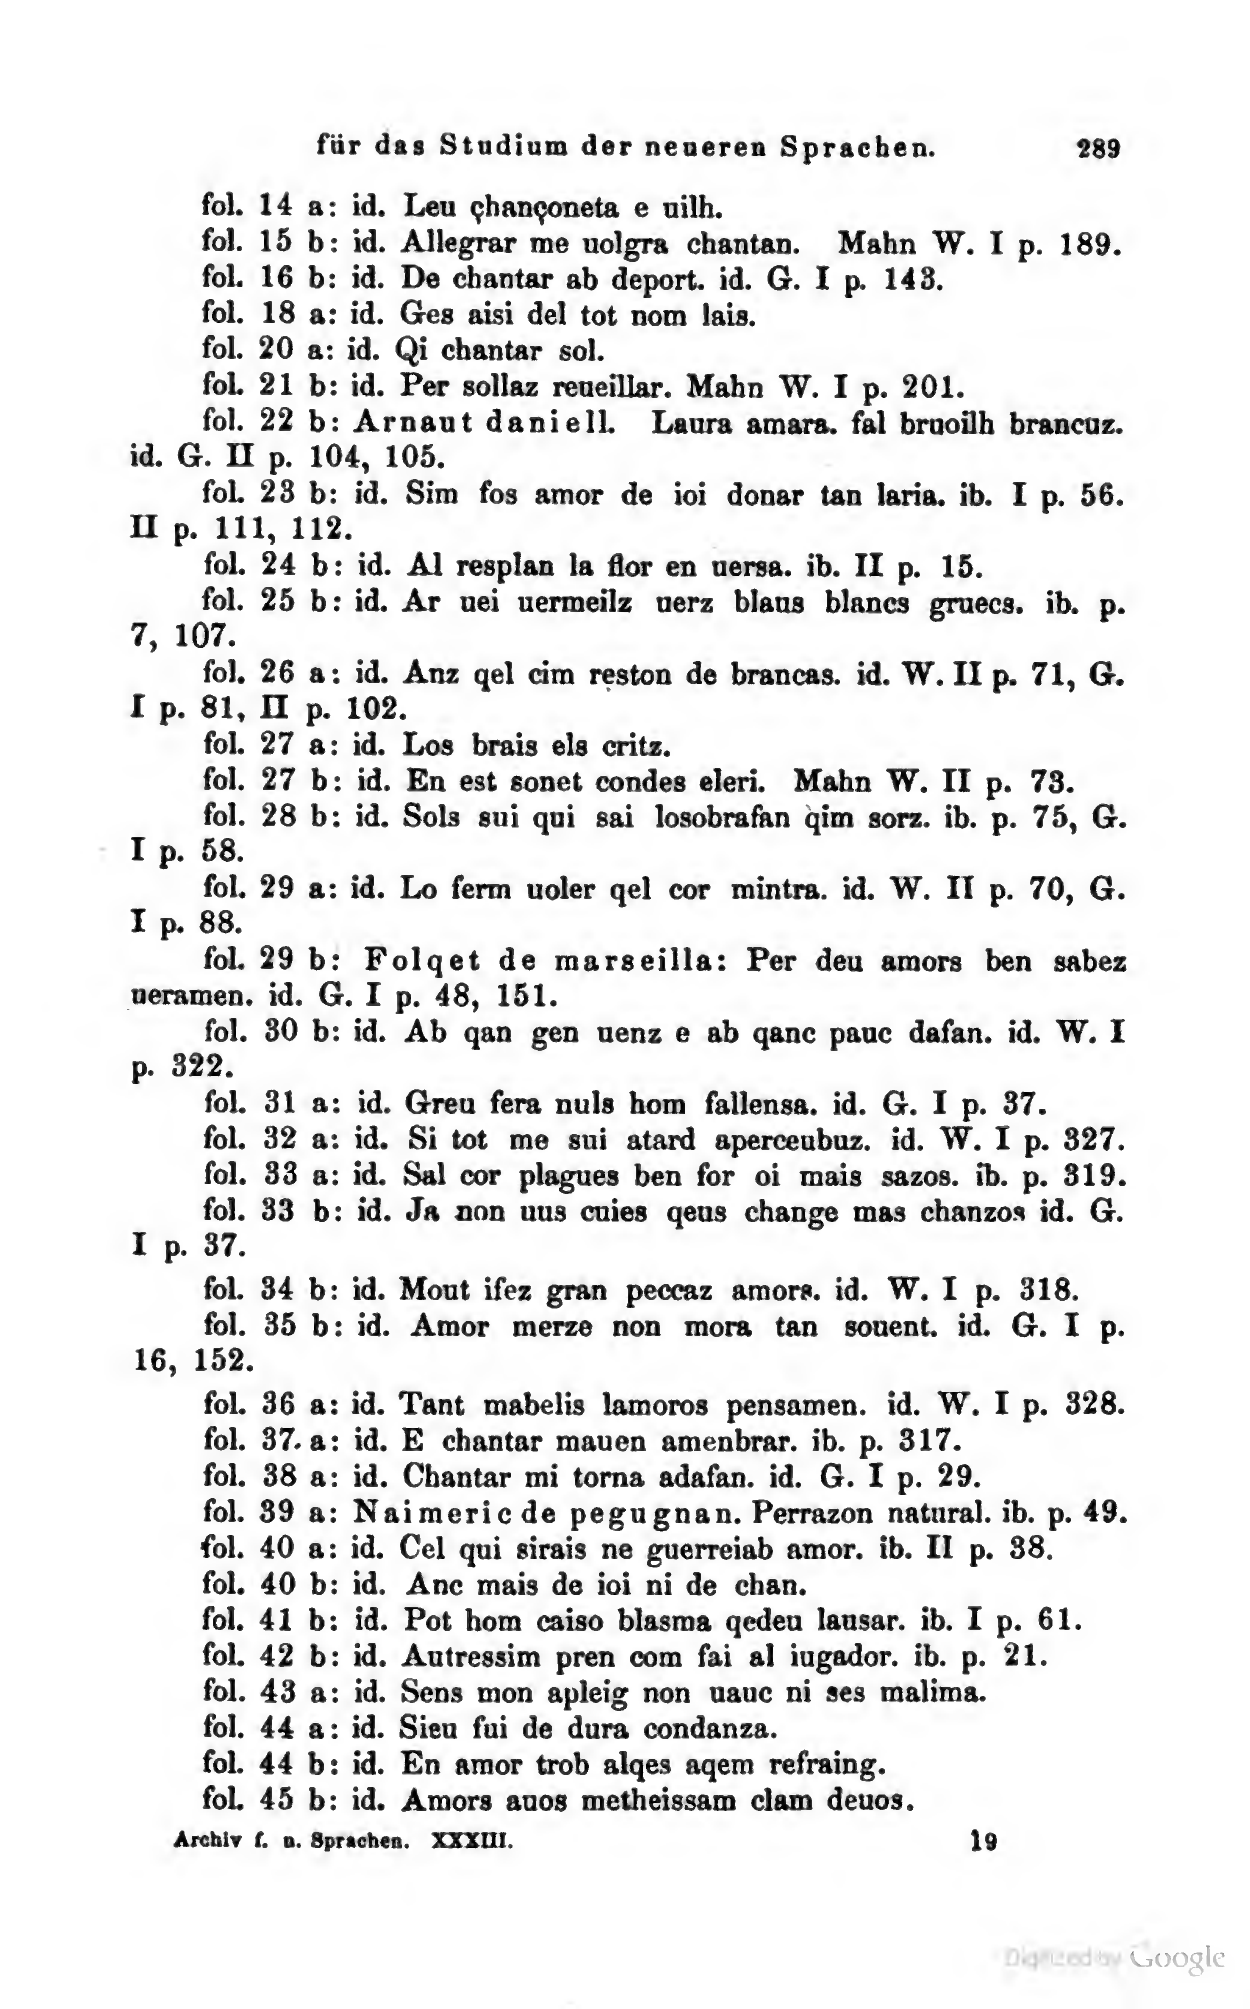 für das Studium der neueren Sprachen. 289
fol. 14 a: id. Leu çhançoneta e uilh.
fol. 15 b: id. Allegrar me uolgra chantan. Mahn W. I p. 189.
fol. 16 b: id. De chantar ab deport. id. G. I p. 143.
fol. 18 a: id. Ges aisi del tot nom lais.
fol. 20 a: id. Qi chantar sol.
fol. 21 b: id. Per sollaz reueillar. Mahn W. I p. 201.
fol. 22 b: Arnaut daniell. Laura amara. fal bruoilh brancuz.
id. G. II p. 104, 105.
fol. 23 b: id. Sim fos amor de ioi donar tan laria. ib. I p. 56.
II p. 111, 112.
fol. 24 b: id. Al resplan la flor en uersa. ib. II p. 15.
fol. 25 b: id. Ar uei uermeilz uerz blaus blancs gruecs. ib. p.
7, 107.
fol. 26 a: id. Anz qel cim reston de brancas. id. W. II p. 71, G.
I p. 81, II p. 102.
fol. 27 a: id. Los brais els critz.
fol. 27 b: id. En est sonet condes eleri. Mahn W. II p. 73.
fol. 28 b: id. Sols sui qui sai losobrafan qim sorz. ib. p. 75, G.
I p. 58.
fol. 29 a: id. Lo ferm uoler qel cor mintra. id. W. II p. 70, G.
I p. 88.
fol. 29 b: Folqet de marseilla: Per deu amors ben sabez
ueramen. id. G. I p. 48, 151.
fol. 30 b: id. Ab qan gen uenz e ab qanc pauc dafan. id. W. I
p. 322.
fol. 31 a: id. Greu fera nuls hom fallensa. id. G. I p. 37.
fol. 32 a: id. Si tot me sui atard aperceubuz. id. W. I p. 327.
fol. 33 a: id. Sal cor plagues ben for oi mais sazos. ib. p. 319.
fol. 33 b: id. Ja non uus cuies qeus change mas chanzos id. G.
I p. 37.
fol. 34 b: id. Mout ifez gran peccaz amors. id. W. I p. 318.
fol. 35 b: id. Amor merze non mora tan souent. id. G. I p.
16, 152.
fol. 36 a: id. Tant mabelis lamoros pensamen. id. W. I p. 328.
fol. 37. a: id. E chantar mauen amenbrar. ib. p. 317.
fol. 38 a: id. Chantar mi torna adafan. id. G. I p. 29.
fol. 39 a: Naimeric de pegugnan. Perrazon natural. ib. p. 49.
fol. 40 a: id. Cel qui sirais ne guerreiab amor. ib. II p. 38.
fol. 40 b: id. Anc mais de ioi ni de chan.
fol. 41 b: id. Pot hom caiso blasma qedeu lausar. ib. I p. 61.
fol. 42 b: id. Autressim pren com fai al iugador. ib. p. 21.
fol. 43 a: id. Sens mon apleig non uauc ni ses malima.
fol. 44 a: id. Sieu fui de dura condanza.
fol. 44 b: id. En amor trob alqes aqem refraing.
fol. 45 b: id. Amors auos metheissam clam deuos.
Archiv f. n. Sprachen. XXXIII. 19
Digitized by Google